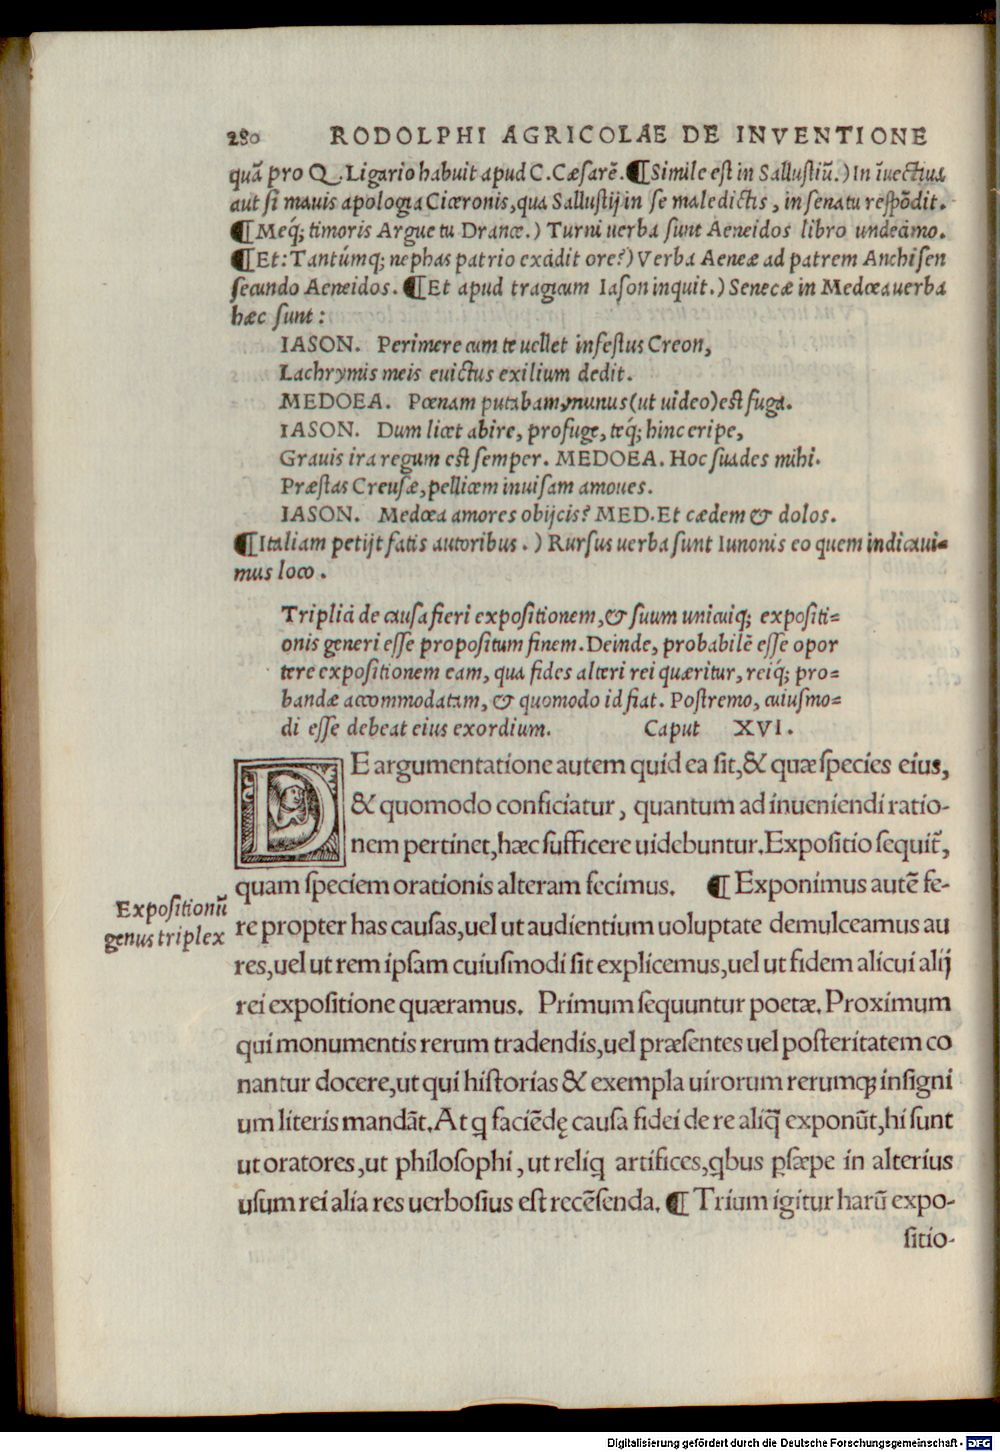 280 RODOLPHI AGRICOLAE DE INVENTIONE
quā pro Q. Ligario habuit apud C. Cæsarē. ¶ Simile est in Sallustiū.) In īuectiua
aut si mauis apologia Ciceronis, qua Sallustij in se maledictis, in senatu respōdit.
¶ Meq́; timoris Argue tu Drance.) Turni uerba sunt Aeneidos libro undecimo.
¶ Et: Tantúmq; nephas patrio excidit ore?) Verba Aeneæ ad patrem Anchisen
secundo Aeneidos. ¶ Et apud tragicum Iason inquit.) Senecæ in Medoea uerba
hæc sunt:
IASON. Perimere cum te uellet infestus Creon,
Lachrymis meis euictus exilium dedit.
MEDOEA. Pœnam putabam, munus (ut uideo) est fuga.
IASON. Dum licet abire, profuge, teq́; hinc eripe,
Grauis ira regum est semper. MEDOEA. Hoc suades mihi.
Præstas Creusæ, pellicem inuisam amoues.
IASON. Medœa amores obijcis? MED. Et cædem & dolos.
¶ Italiam petijt fatis autoribus.) Rursus uerba sunt Iunonis eo quem indicaui-
mus loco.
Triplici de causa fieri expositionem, & suum unicuiq; expositi-
onis generi esse propositum finem. Deinde, probabilē esse opor
tere expositionem eam, qua fides alteri rei quæritur, reiq́; pro-
bandæ accommodatam, & quomodo id fiat. Postremo, cuiusmo-
di esse debeat eius exordium. Caput XVI.
DE argumentatione autem quid ea sit, & quæ species eius,
& quomodo conficiatur, quantum ad inueniendi ratio-
nem pertinet, hæc sufficere uidebuntur. Expositio sequit̃,
quam speciem orationis alteram fecimus. ¶ Exponimus autē fe-
Expositionū
genus triplex
re propter has causas, uel ut audientium uoluptate demulceamus au
res, uel ut rem ipsam cuiusmodi sit explicemus, uel ut fidem alicui alij
rei expositione quæramus. Primum sequuntur poetæ. Proximum
qui monumentis rerum tradendis, uel præsentes uel posteritatem co
nantur docere, ut qui historias & exempla uirorum rerumq; insigni
um literis mandāt. At q faciēdę causa fidei de re aliq̄ exponūt, hi sunt
ut oratores, ut philosophi, ut reliq artifices, qbus p̱sæpe in alterius
usum rei alia res uerbosius est recēsenda. ¶ Trium igitur harū expo-
sitio-
Digitalisierung gefördert durch die Deutsche Forschungsgemeinschaft - DFG